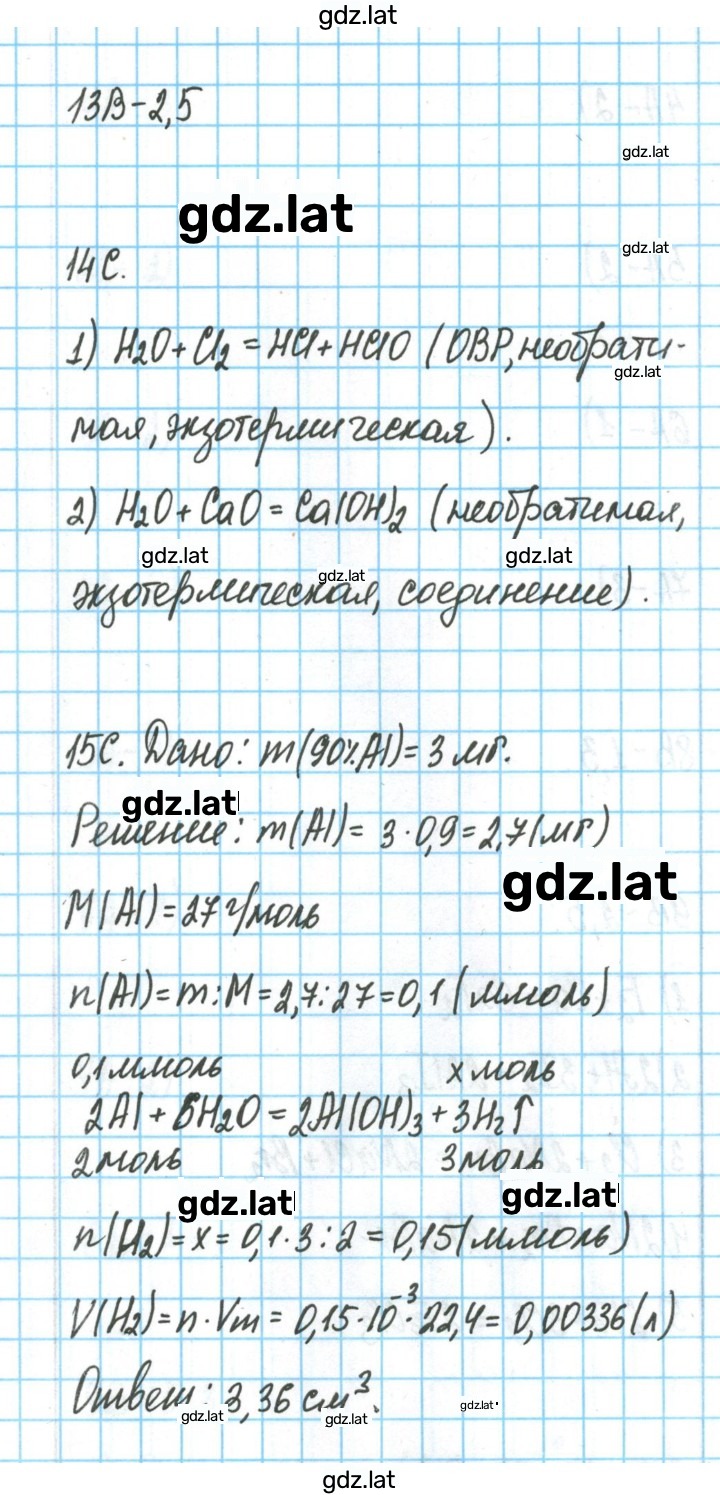 gdz.lat
13В-2,5
gdz.lat
gdz.lat
gdz.lat
14С.
1) H₂O + Cl₂ = HCl + HClO (ОВР, необрати-
gdz.lat
мая, экзотермическая).
2) H₂O + CaO = Ca(OH)₂ (необратимая,
gdz.lat gdz.lat
gdz.lat
экзотермическая, соединение).
15С. Дано: m(90%Al) = 3 мг.
gdz.lat
Решение: m(Al) = 3 · 0,9 = 2,7(мг)
gdz.lat
M(Al) = 27 г/моль
n(Al) = m : M = 2,7 : 27 = 0,1 (ммоль)
0,1 ммоль x моль
2Al + 6H₂O = 2Al(OH)₃ + 3H₂↑
2 моль 3 моль
gdz.lat gdz.lat
n(H₂) = x = 0,1 · 3 : 2 = 0,15(ммоль)
V(H₂) = n · Vm = 0,15 · 10⁻³ · 22,4 = 0,00336(л)
Ответ: 3,36 см³.
gdz.lat gdz.lat gdz.lat
gdz.lat